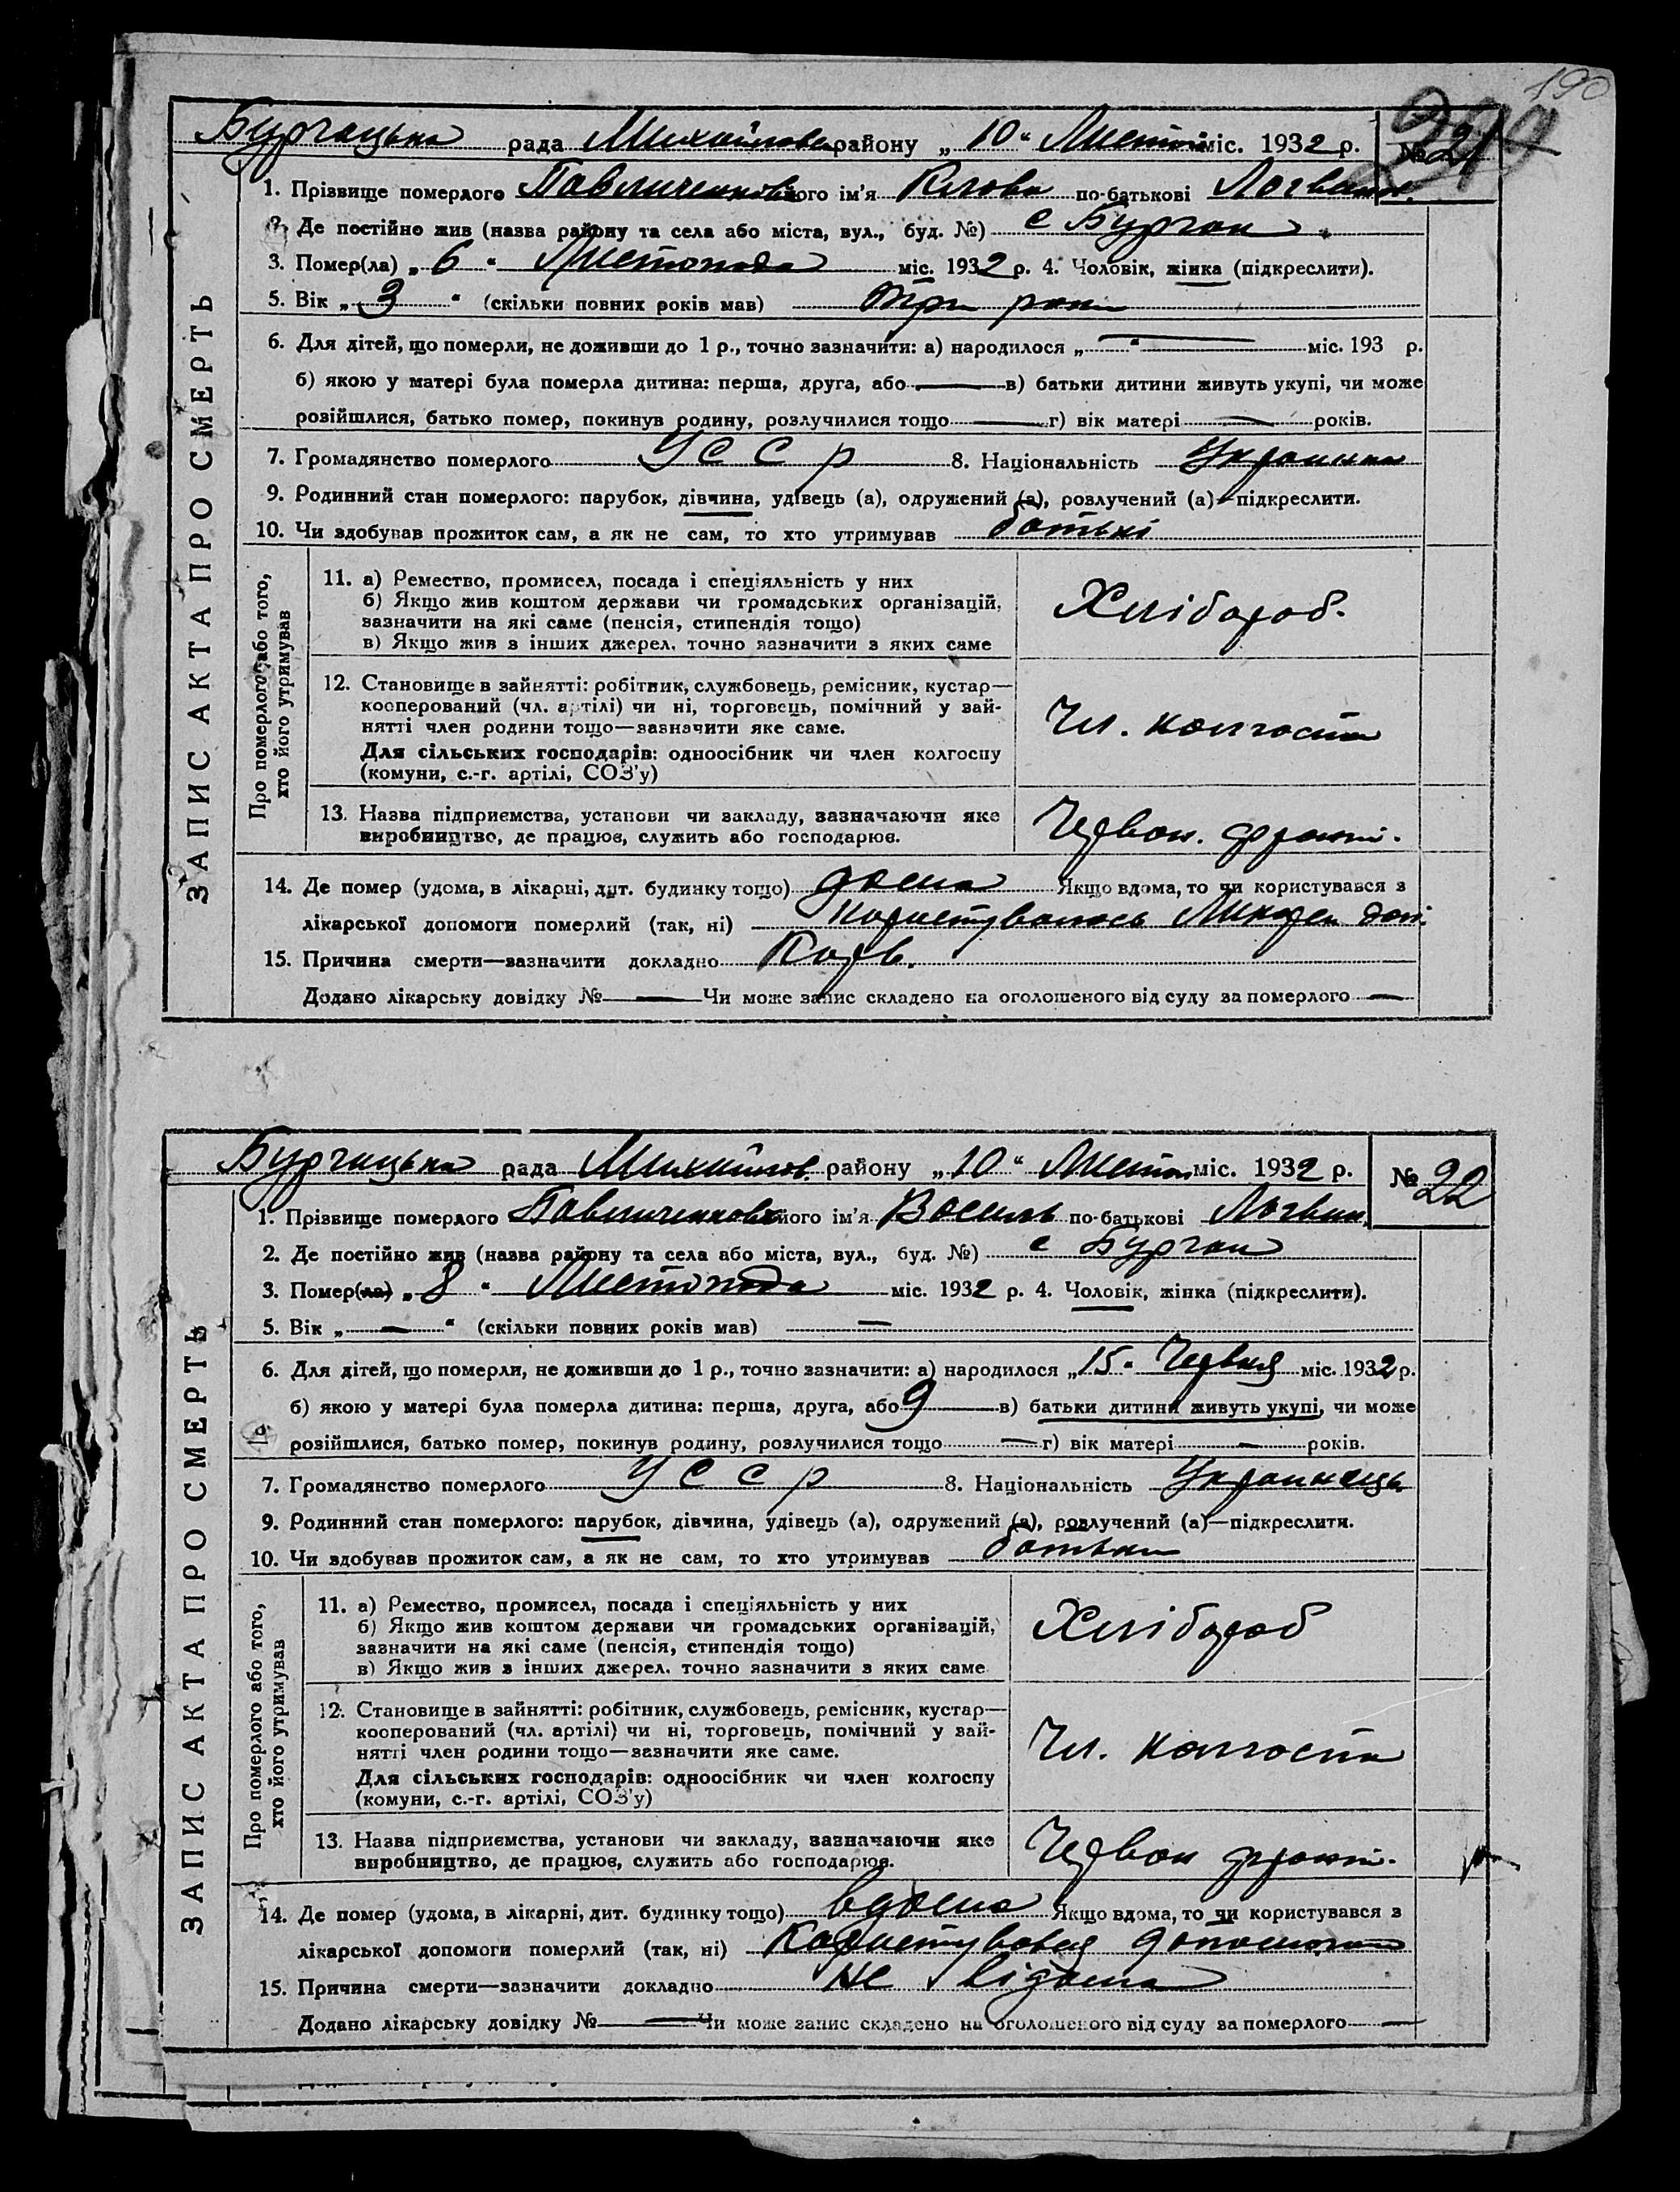 190
Бурчацька рада Михайлов. району „10“ Листоп. міс. 1932 р. № 21
1. Прізвище померлого Павличенкова його ім'я Клава по-батькові Логванов.
2. Де постійно жив (назва району та села або міста, вул., буд. №) с Бурчак
3. Помер(ла) „6“ Листопада міс. 1932 р. 4. Чоловік, жінка (підкреслити).
5. Вік „3“ (скільки повних років мав) три роки
6. Для дітей, що померли, не доживши до 1 р., точно зазначити: а) народилося „—“ — міс. 193 р.
б) якою у матері була померла дитина: перша, друга, або — в) батьки дитини живуть укупі, чи може
розійшлися, батько помер, покинув родину, розлучилися тощо — г) вік матері — років.
7. Громадянство померлого УССР 8. Національність Украинка
9. Родинний стан померлого: парубок, дівчина, удівець (а), одружений (а), розлучений (а)—підкреслити.
10. Чи здобував прожиток сам, а як не сам, то хто утримував батькі
ЗАПИС АКТА ПРО СМЕРТЬ
Про померлого або того,
хто його утримував
11. а) Ремество, промисел, посада і спеціяльність у них
б) Якщо жив коштом держави чи громадських організацій,
зазначити на які саме (пенсія, стипендія тощо)
в) Якщо жив з інших джерел, точно зазначити з яких саме
Хлібороб.
12. Становище в зайнятті: робітник, службовець, ремісник, кустар—
кооперований (чл. артілі) чи ні, торговець, помічний у зай-
нятті член родини тощо—зазначити яке саме.
Для сільських господарів: одноосібник чи член колгоспу
(комуни, с.-г. артілі, СОЗ'у)
Чл. колгоспа
13. Назва підприємства, установи чи закладу, зазначаючи яке
виробництво, де працює, служить або господарює.
Червон. фронт.
14. Де помер (удома, в лікарні, дит. будинку тощо) дома Якщо вдома, то чи користувався з
лікарської допомоги померлий (так, ні) Користувалась Ликарск доп.
15. Причина смерти—зазначити докладно Кор.
Додано лікарську довідку № — Чи може запис складено на оголошеного від суду за померлого —
Бурчацька рада Михайлов. району „10“ Листоп. міс. 1932 р. № 22
1. Прізвище померлого Павличенков його ім'я Василь по-батькові Логвин.
2. Де постійно жив (назва району та села або міста, вул., буд. №) с Бурчак
3. Помер(ла) „8“ Листопада міс. 1932 р. 4. Чоловік, жінка (підкреслити).
5. Вік „—“ (скільки повних років мав) —
6. Для дітей, що померли, не доживши до 1 р., точно зазначити: а) народилося „15“ Червня міс. 1932 р.
б) якою у матері була померла дитина: перша, друга, або 9 в) батьки дитини живуть укупі, чи може
розійшлися, батько помер, покинув родину, розлучилися тощо — г) вік матері — років.
7. Громадянство померлого УССР 8. Національність Украинець
9. Родинний стан померлого: парубок, дівчина, удівець (а), одружений (а), розлучений (а)—підкреслити.
10. Чи здобував прожиток сам, а як не сам, то хто утримував батьки
ЗАПИС АКТА ПРО СМЕРТЬ
Про померлого або того,
хто його утримував
11. а) Ремество, промисел, посада і спеціяльність у них
б) Якщо жив коштом держави чи громадських організацій,
зазначити на які саме (пенсія, стипендія тощо)
в) Якщо жив з інших джерел, точно зазначити з яких саме
Хлібороб
12. Становище в зайнятті: робітник, службовець, ремісник, кустар—
кооперований (чл. артілі) чи ні, торговець, помічний у зай-
нятті член родини тощо—зазначити яке саме.
Для сільських господарів: одноосібник чи член колгоспу
(комуни, с.-г. артілі, СОЗ'у)
Чл. колгоспа
13. Назва підприємства, установи чи закладу, зазначаючи яке
виробництво, де працює, служить або господарює.
Червон фронт.
14. Де помер (удома, в лікарні, дит. будинку тощо) вдома Якщо вдома, то чи користувався з
лікарської допомоги померлий (так, ні) Користувався допомогою
15. Причина смерти—зазначити докладно не відома
Додано лікарську довідку № — Чи може запис складено на оголошеного від суду за померлого —